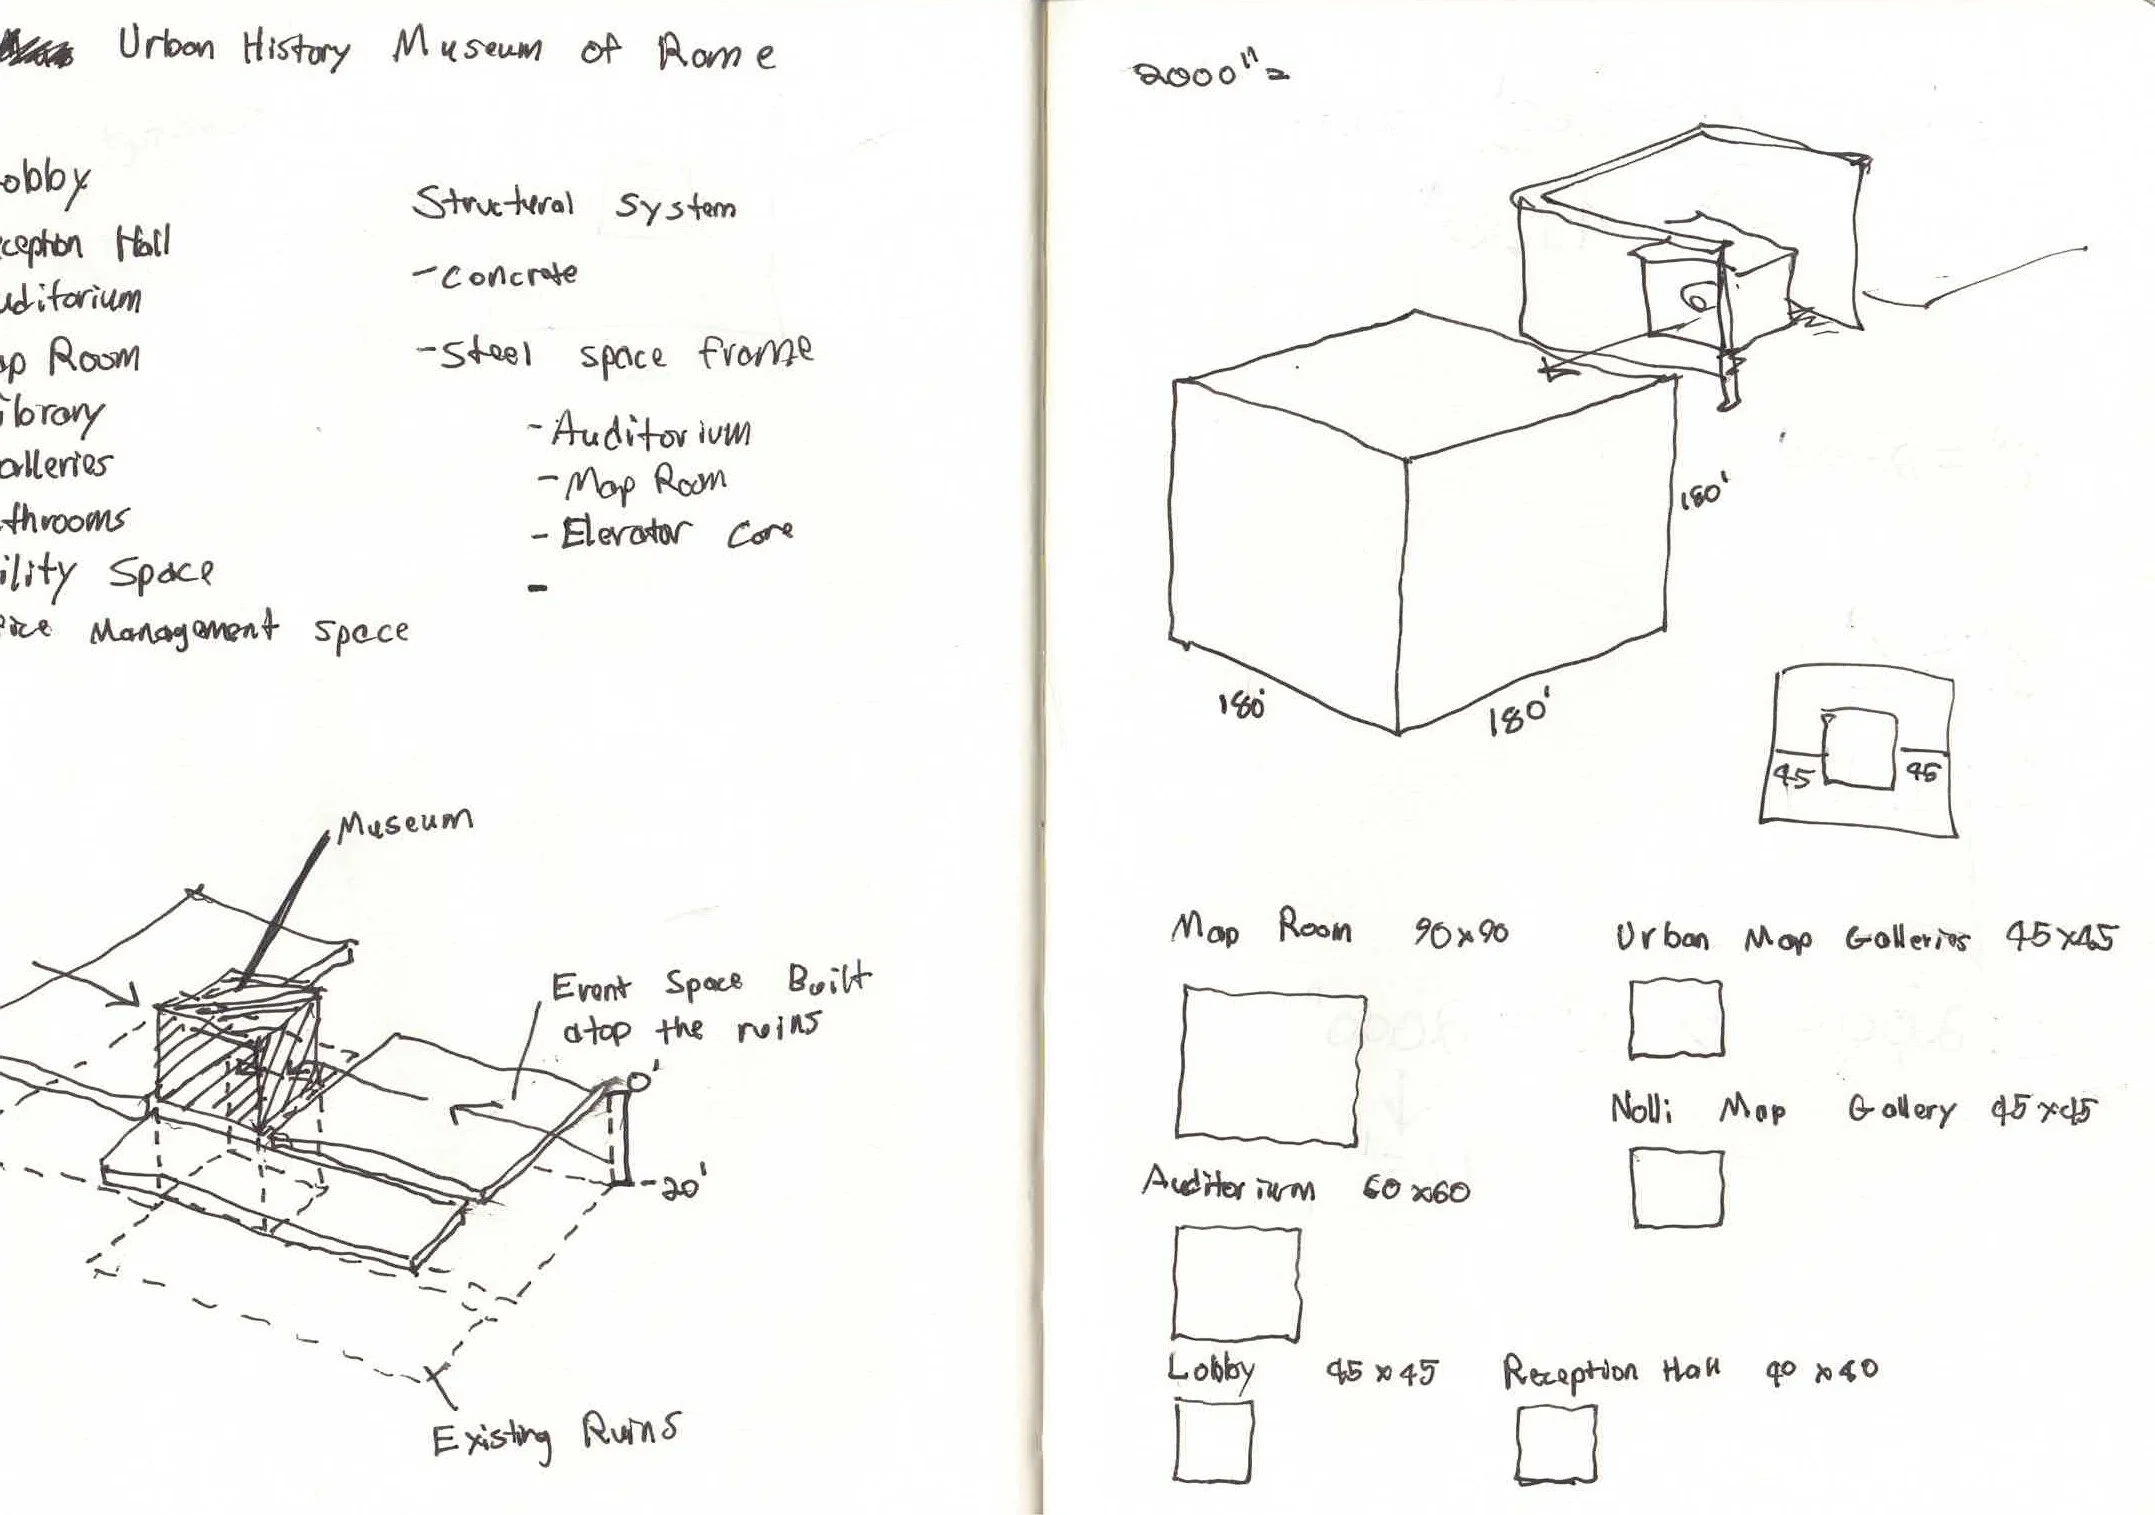 Urban History Museum of Rome
obby
ception Hall
uditorium
ap Room
ibrary
alleries
throoms
ility Space
fice Management space
Structural System
- Concrete
- Steel space frame
- Auditorium
- Map Room
- Elevator Core
-
Museum
Event Space Built
atop the ruins
0'
-20'
Existing Ruins
2000" =
180'
180'
180'
45 45
Map Room 90x90
Urban Map Galleries 45x45
Nolli Map Gallery 45x45
Auditorium 60x60
Lobby 45x45
Reception Hall 40x40